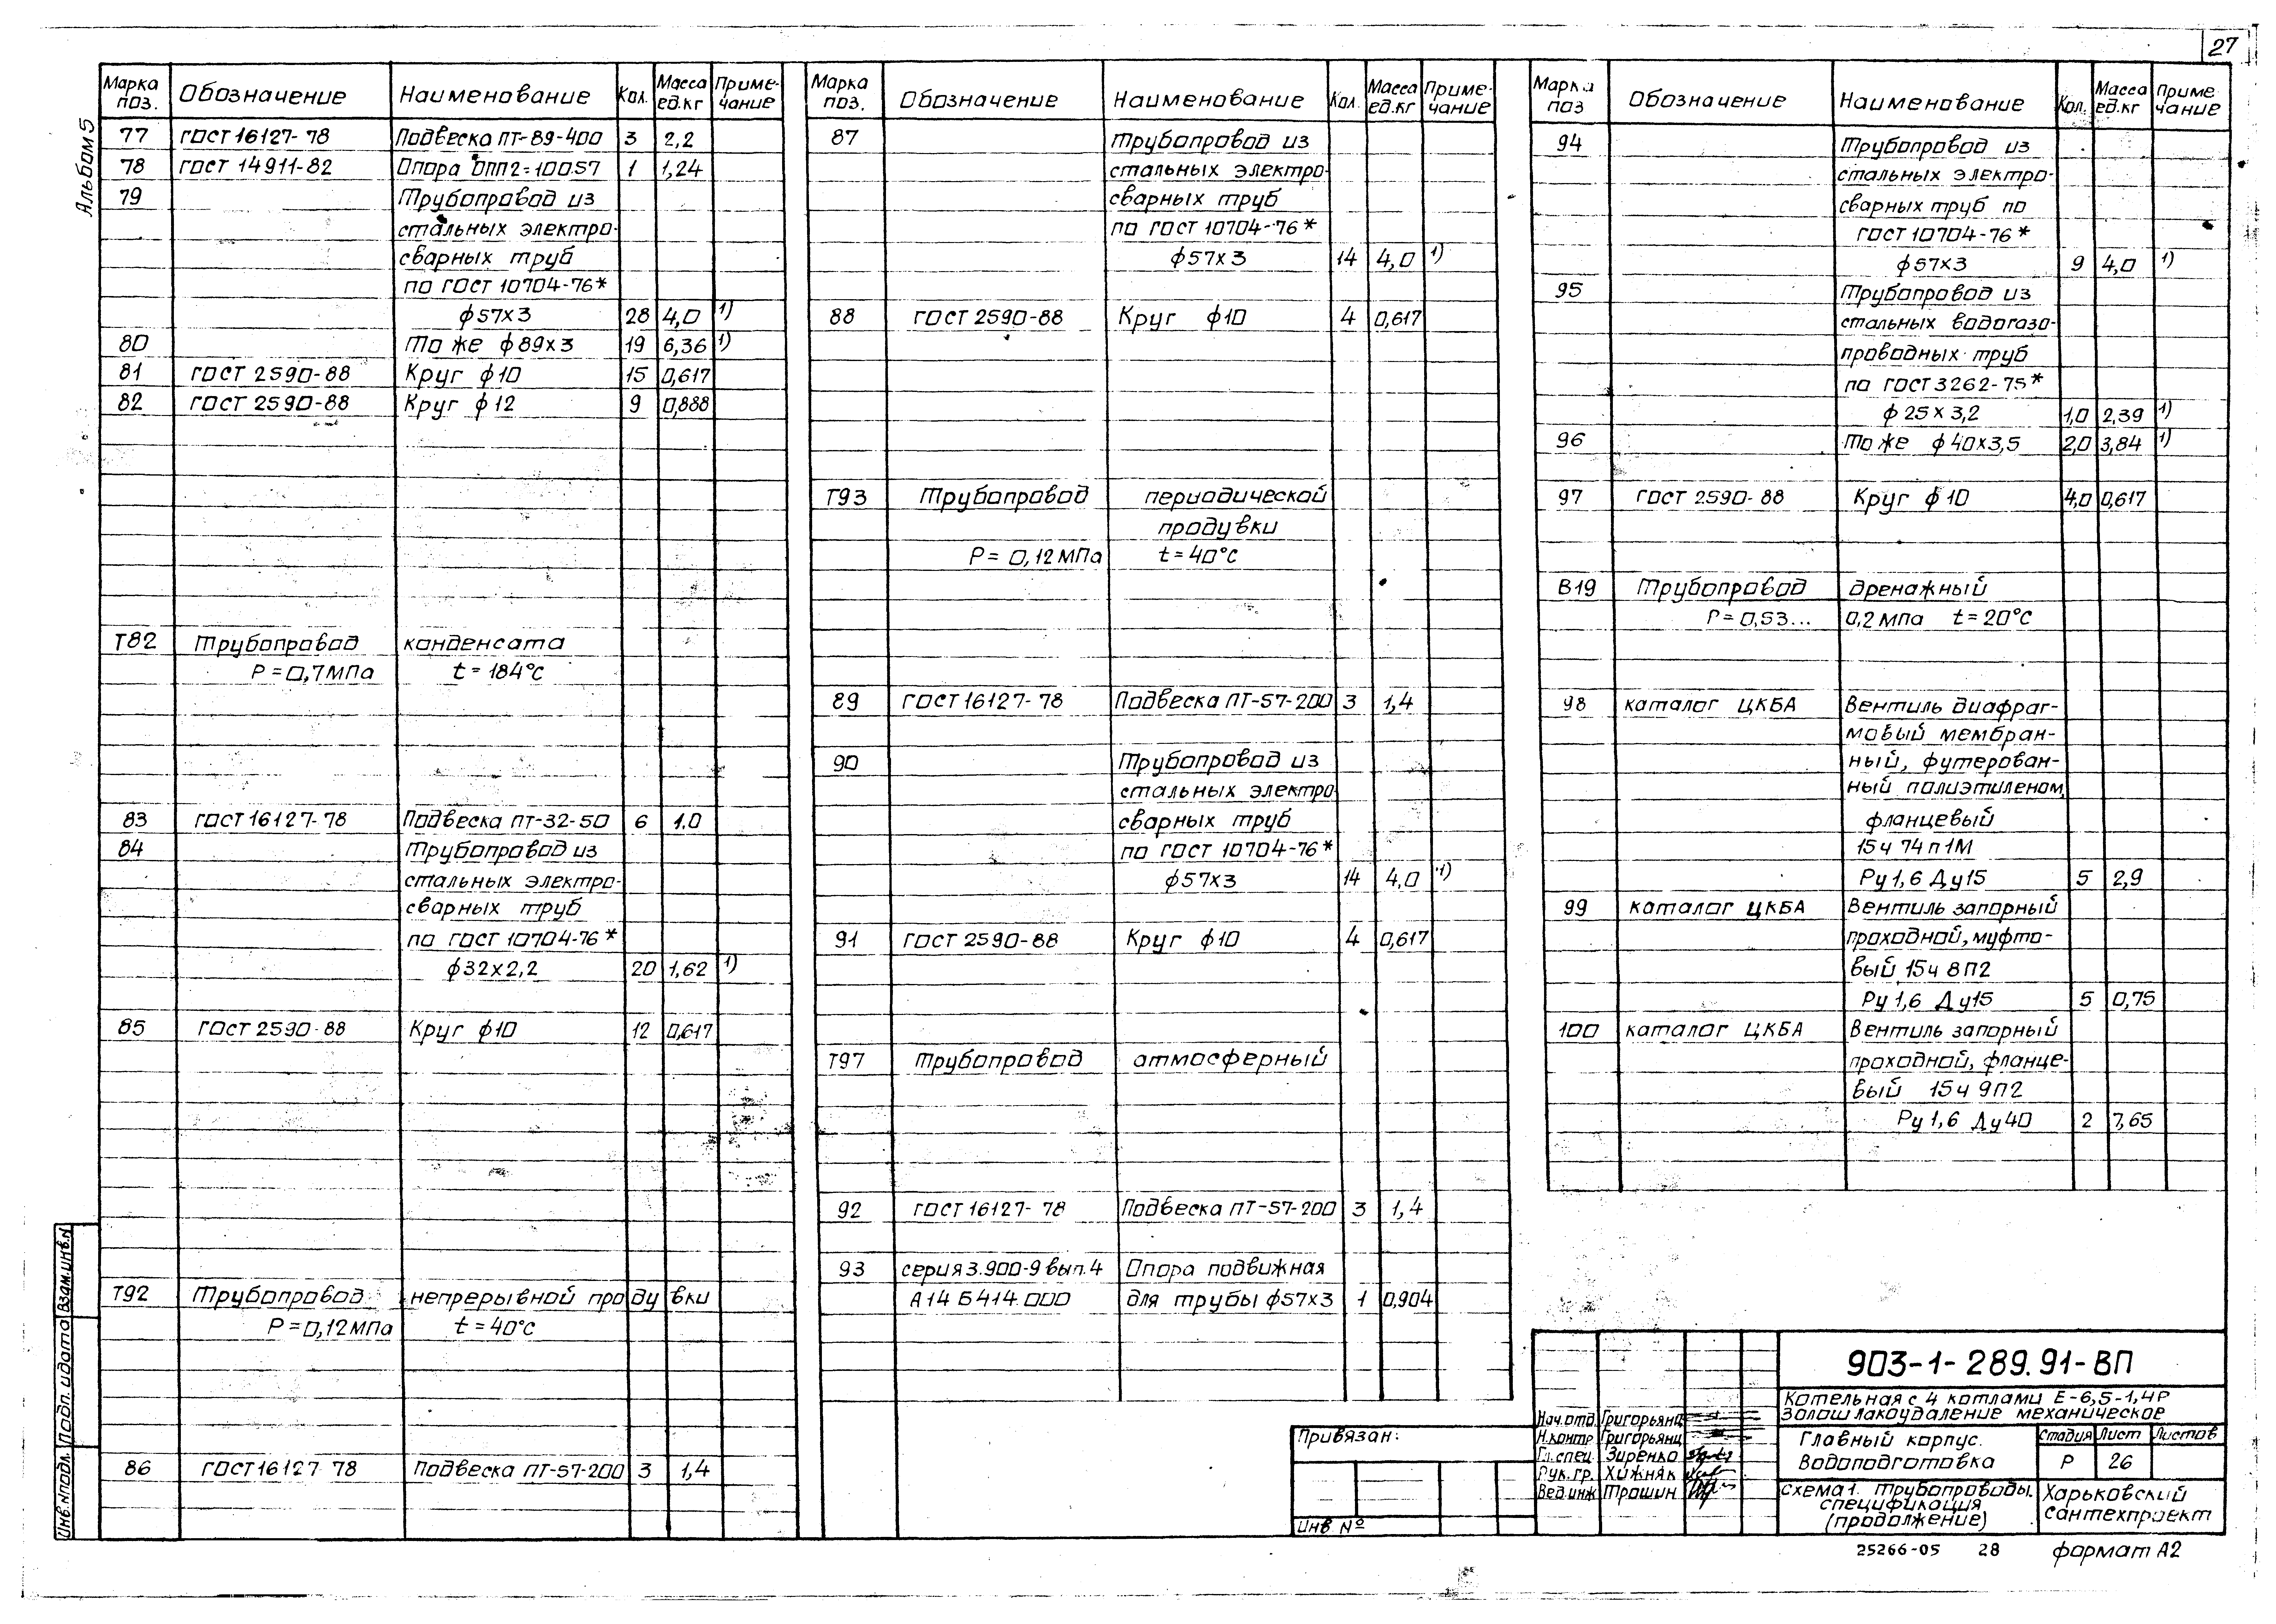 27
Альбом 5
Марка поз. Обозначение Наименование Кол. Масса ед.кг Примечание
77 ГОСТ 16127-78 Подвеска ПТ-89-400 3 2,2
78 ГОСТ 14911-82 Опора ОПП2-100.57 1 1,24
79 Трубопровод из
стальных электро-
сварных труб
по ГОСТ 10704-76*
ф57х3 28 4,0 1)
80 То же ф89х3 19 6,36 1)
81 ГОСТ 2590-88 Круг ф10 15 0,617
82 ГОСТ 2590-88 Круг ф12 9 0,888
Т82 Трубопровод конденсата
Р=0,7МПа t=184°С
83 ГОСТ 16127-78 Подвеска ПТ-32-50 6 1.0
84 Трубопровод из
стальных электро-
сварных труб
по ГОСТ 10704-76*
ф32х2,2 20 1,62 1)
85 ГОСТ 2590-88 Круг ф10 12 0,617
Т92 Трубопровод непрерывной продувки
Р=0,12МПа t=40°С
86 ГОСТ 16127 78 Подвеска ПТ-57-200 3 1,4
Марка поз. Обозначение Наименование Кол. Масса ед.кг Приме-чание
87 Трубопровод из
стальных электро-
сварных труб
по ГОСТ 10704-76*
ф57х3 14 4,0 1)
88 ГОСТ 2590-88 Круг ф10 4 0,617
Т93 Трубопровод периодической
продувки
Р=0,12МПа t=40°С
89 ГОСТ 16127-78 Подвеска ПТ-57-200 3 1,4
90 Трубопровод из
стальных электро-
сварных труб
по ГОСТ 10704-76*
ф57х3 14 4,0 1)
91 ГОСТ 2590-88 Круг ф10 4 0,617
Т97 Трубопровод атмосферный
92 ГОСТ 16127-78 Подвеска ПТ-57-200 3 1,4
93 серия 3.900-9 вып.4 Опора подвижная
А14 Б414.000 для трубы ф57х3 1 0,904
Марка поз Обозначение Наименование Кол. Масса ед.кг Приме чание
94 Трубопровод из
стальных электро-
сварных труб по
ГОСТ 10704-76*
ф57х3 9 4,0 1)
95 Трубопровод из
стальных водогазо-
проводных труб
по ГОСТ 3262-75*
ф25х3,2 1,0 2,39 1)
96 То же ф40х3,5 2,0 3,84 1)
97 ГОСТ 2590-88 Круг ф10 4,0 0,617
В19 Трубопровод дренажный
Р=0,53... 0,2мпа t=20°С
98 каталог ЦКБА Вентиль диафраг-
мовый мембран-
ный, футерован-
ный полиэтиленом,
фланцевый
15ч 74п1М
Ру1,6 Ду15 5 2,9
99 каталог ЦКБА Вентиль запорный
проходной, муфто-
вый 15ч 8П2
Ру1,6 Ду15 5 0,75
100 каталог ЦКБА Вентиль запорный
проходной, фланце-
вый 15ч 9П2
Ру1,6 Ду40 2 7,65
Инв.Nподл. Подп. и дата Взам.инв.N
Привязан:
Инв №
Нач.отд. Григорьянц
Н.контр Григорьянц
Гл.спец. Зиренко
Рук.гр. Хижняк
Вед.инж Трошин
903-1-289.91-ВП
Котельная с 4 котлами Е-6,5-1,4Р
Золошлакоудаление механическое
Главный корпус.
Водоподготовка
Стадия Лист Листов
Р 26
Схема 1. Трубопроводы.
спецификация
(продолжение)
Харьковский
Сантехпроект
25266-05 28 формат А2